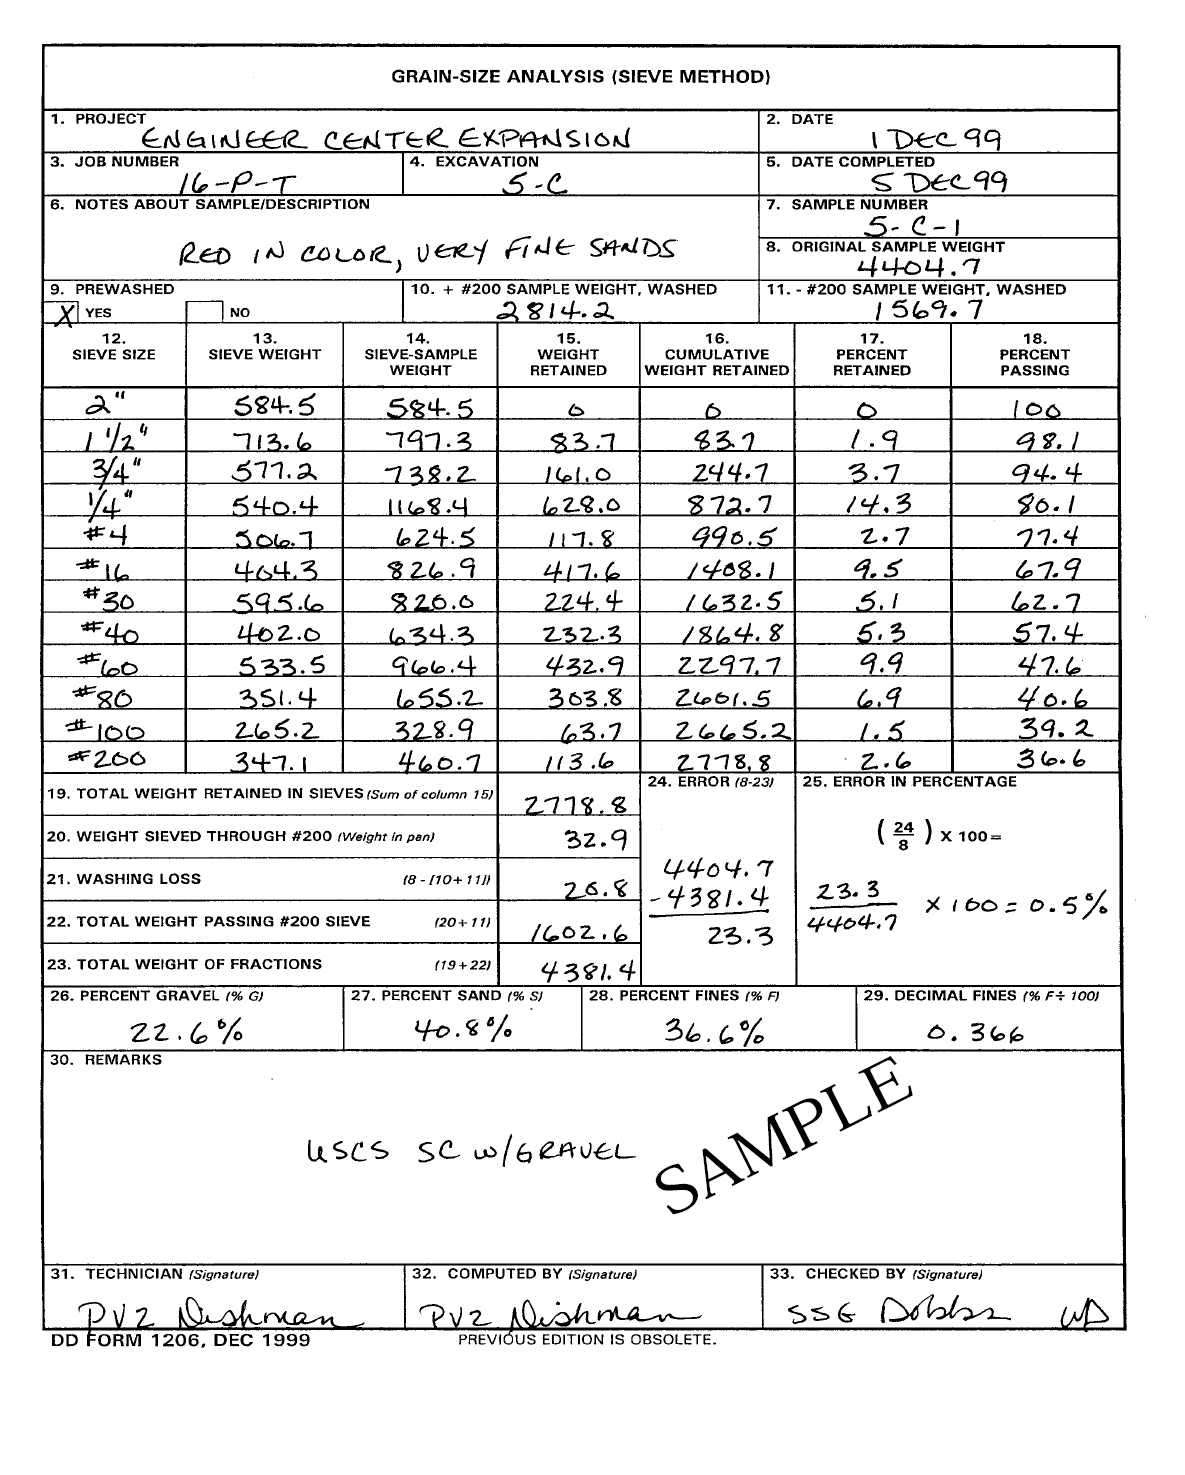 GRAIN-SIZE ANALYSIS (SIEVE METHOD)
1. PROJECT
ENGINEER CENTER EXPANSION
2. DATE
1 DEC 99
3. JOB NUMBER
16-P-T
4. EXCAVATION
5-C
5. DATE COMPLETED
5 DEC 99
6. NOTES ABOUT SAMPLE/DESCRIPTION
RED IN COLOR, VERY FINE SANDS
7. SAMPLE NUMBER
5-C-1
8. ORIGINAL SAMPLE WEIGHT
4404.7
9. PREWASHED
X YES NO
10. + #200 SAMPLE WEIGHT, WASHED
2814.2
11. - #200 SAMPLE WEIGHT, WASHED
1569.7
12. SIEVE SIZE 13. SIEVE WEIGHT 14. SIEVE-SAMPLE WEIGHT 15. WEIGHT RETAINED 16. CUMULATIVE WEIGHT RETAINED 17. PERCENT RETAINED 18. PERCENT PASSING
2" 584.5 584.5 0 0 0 100
1 1/2" 713.6 797.3 83.7 83.7 1.9 98.1
3/4" 577.2 738.2 161.0 244.7 3.7 94.4
1/4" 540.4 1168.4 628.0 872.7 14.3 80.1
#4 506.7 624.5 117.8 990.5 2.7 77.4
#16 404.3 826.9 417.6 1408.1 9.5 67.9
#30 595.6 820.0 224.4 1632.5 5.1 62.7
#40 402.0 634.3 232.3 1864.8 5.3 57.4
#60 533.5 966.4 432.9 2297.7 9.9 47.6
#80 351.4 655.2 303.8 2601.5 6.9 40.6
#100 265.2 328.9 63.7 2665.2 1.5 39.2
#200 347.1 460.7 113.6 2778.8 2.6 36.6
19. TOTAL WEIGHT RETAINED IN SIEVES (Sum of column 15) 2778.8
20. WEIGHT SIEVED THROUGH #200 (Weight in pan) 32.9
21. WASHING LOSS (8 - [10+ 11]) 20.8
22. TOTAL WEIGHT PASSING #200 SIEVE (20+ 11) 1602.6
23. TOTAL WEIGHT OF FRACTIONS (19+22) 4381.4
24. ERROR (8-23)
4404.7
-4381.4
23.3
25. ERROR IN PERCENTAGE
(24/8) X 100=
23.3/4404.7 X 100 = 0.5%
26. PERCENT GRAVEL (% G)
22.6%
27. PERCENT SAND (% S)
40.8%
28. PERCENT FINES (% F)
36.6%
29. DECIMAL FINES (% F÷ 100)
0.366
30. REMARKS
USCS SC W/GRAVEL
SAMPLE
31. TECHNICIAN (Signature)
PV2 Dishman
32. COMPUTED BY (Signature)
PV2 Dishman
33. CHECKED BY (Signature)
SSG Dobbs WD
DD FORM 1206, DEC 1999
PREVIOUS EDITION IS OBSOLETE.